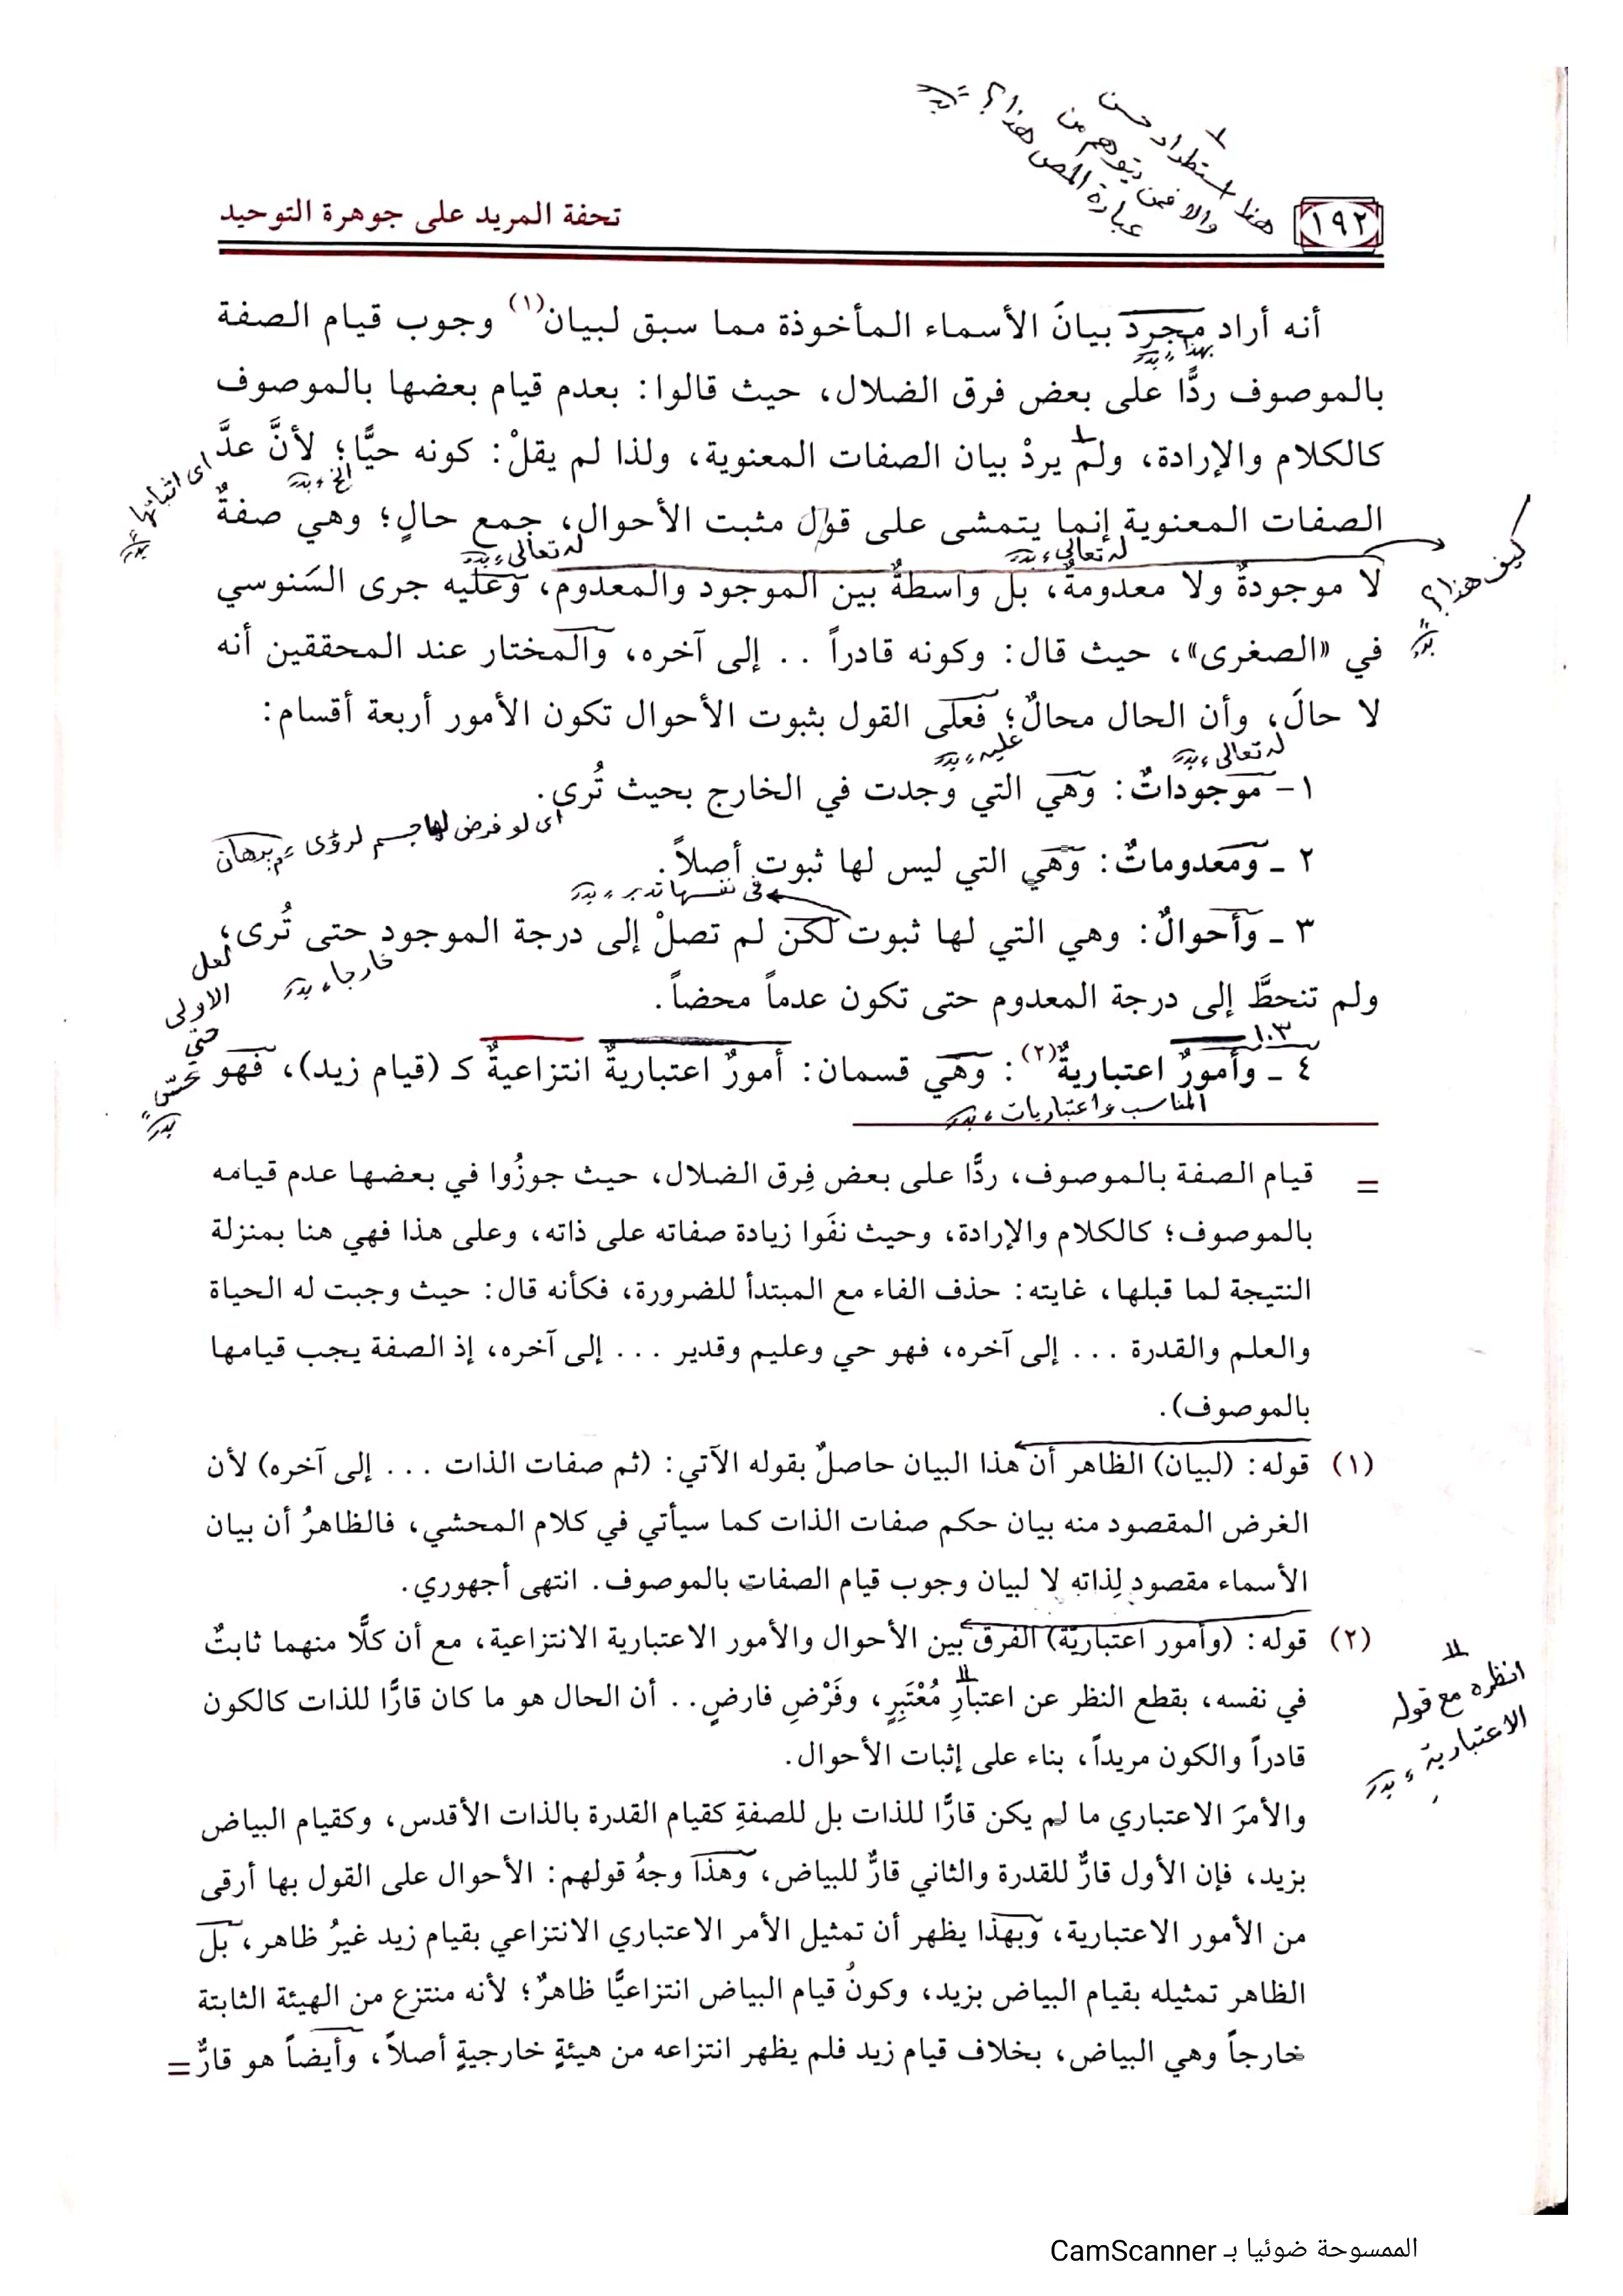 هذا استطراد حسن
والا فمن يتوهم من
عبارة المص هذا؟ = بدر
١٩٢
تحفة المريد على جوهرة التوحيد
أنه أراد مجرد بيانَ الأسماء المأخوذة مما سبق لبيان(١) وجوب قيام الصفة
بهذا ، بدر
بالموصوف ردًّا على بعض فرق الضلال، حيث قالوا: بعدم قيام بعضها بالموصوف
كالكلام والإرادة، ولم يردْ بيان الصفات المعنوية، ولذا لم يقلْ: كونه حيًّا؛ لأنَّ عدَّ
الخ ، بدر
اى اثباتها ، بدر
الصفات المعنوية إنما يتمشى على قول مثبت الأحوال، جمع حالٍ؛ وهي صفةٌ
له تعالى ، بدر
له تعالى ، بدر
لا موجودةٌ ولا معدومةٌ، بل واسطةٌ بين الموجود والمعدوم، وعليه جرى السَنوسي
كيف هذا؟ بدر
في «الصغرى»، حيث قال: وكونه قادراً .. إلى آخره، والمختار عند المحققين أنه
لا حالَ، وأن الحال محالٌ؛ فعلى القول بثبوت الأحوال تكون الأمور أربعة أقسام:
له تعالى ، بدر
عليه ، بدر
١- موجوداتٌ: وهي التي وجدت في الخارج بحيث تُرى.
اى لو فرض لها جسم لرؤى ، م برهان
٢ ـ ومعدوماتٌ: وهي التي ليس لها ثبوت أصلاً.
فى نفسها تدبر ، بدر
٣ ـ وأحوالٌ: وهي التي لها ثبوت لكن لم تصلْ إلى درجة الموجود حتى تُرى،
خارجا ، بدر
لعل
الاولى
حتى
تحسّ
بدر
ولم تنحطَّ إلى درجة المعدوم حتى تكون عدماً محضاً.
١٠٣
٤ ـ وأمورٌ اعتباريةٌ(٢): وهي قسمان: أمورٌ اعتباريةٌ انتزاعيةٌ كـ (قيام زيد)، فهو
المناسب واعتباريات ، بدر
= قيام الصفة بالموصوف، ردًّا على بعض فِرق الضلال، حيث جوزُوا في بعضها عدم قيامه
بالموصوف؛ كالكلام والإرادة، وحيث نفَوا زيادة صفاته على ذاته، وعلى هذا فهي هنا بمنزلة
النتيجة لما قبلها، غايته: حذف الفاء مع المبتدأ للضرورة، فكأنه قال: حيث وجبت له الحياة
والعلم والقدرة ... إلى آخره، فهو حي وعليم وقدير ... إلى آخره، إذ الصفة يجب قيامها
بالموصوف).
(١) قوله: (لبيان) الظاهر أن هذا البيان حاصلٌ بقوله الآتي: (ثم صفات الذات ... إلى آخره) لأن
الغرض المقصود منه بيان حكم صفات الذات كما سيأتي في كلام المحشي، فالظاهرُ أن بيان
الأسماء مقصود لِذاتهِ لا لبيان وجوب قيام الصفات بالموصوف. انتهى أجهوري.
(٢) قوله: (وأمور اعتباريّة) الفرق بين الأحوال والأمور الاعتبارية الانتزاعية، مع أن كلًّا منهما ثابتٌ
في نفسه، بقطع النظر عن اعتبارِ مُعْتَبِرٍ، وفَرْضِ فارضٍ.. أن الحال هو ما كان قارًّا للذات كالكون
انظره مع قوله
الاعتبارية ، بدر
قادراً والكون مريداً، بناء على إثبات الأحوال.
والأمرَ الاعتباري ما لم يكن قارًّا للذات بل للصفةِ كقيام القدرة بالذات الأقدس، وكقيام البياض
بزيد، فإن الأول قارٌّ للقدرة والثاني قارٌّ للبياض، وهذا وجهُ قولهم: الأحوال على القول بها أرقى
من الأمور الاعتبارية، وبهذا يظهر أن تمثيل الأمر الاعتباري الانتزاعي بقيام زيد غيرُ ظاهر، بل
الظاهر تمثيله بقيام البياض بزيد، وكونُ قيام البياض انتزاعيًّا ظاهرٌ؛ لأنه منتزع من الهيئة الثابتة
خارجاً وهي البياض، بخلاف قيام زيد فلم يظهر انتزاعه من هيئةٍ خارجيةٍ أصلاً، وأيضاً هو قارٌّ =
الممسوحة ضوئيا بـ CamScanner